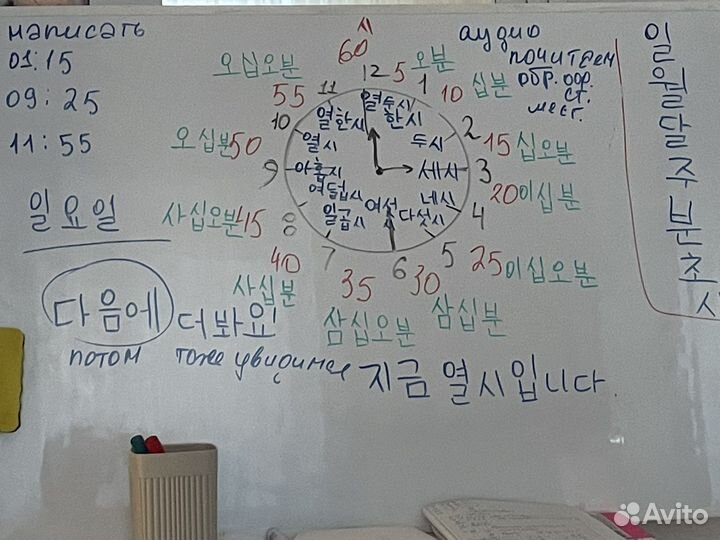 написать
01:15
09:25
11:55
일요일
аудио
почитаем
обр. офр.
ст.
месг.
일
월
달
주
분
초
시
60
12
5 오분
1
10 십분
2
15 십오분
3
20 이십분
4
25 이십오분
5
30 삼십분
6
35 삼십오분
7
40 사십분
8
45 사십오분
9
50 오십분
10
55 오십오분
11
열두시
한시
두시
세시
네시
다섯시
여섯
일곱시
여덟시
아홉시
열시
열한시
다음에 더 봐요!
потом тоже увидимся
지금 열시입니다.
Avito